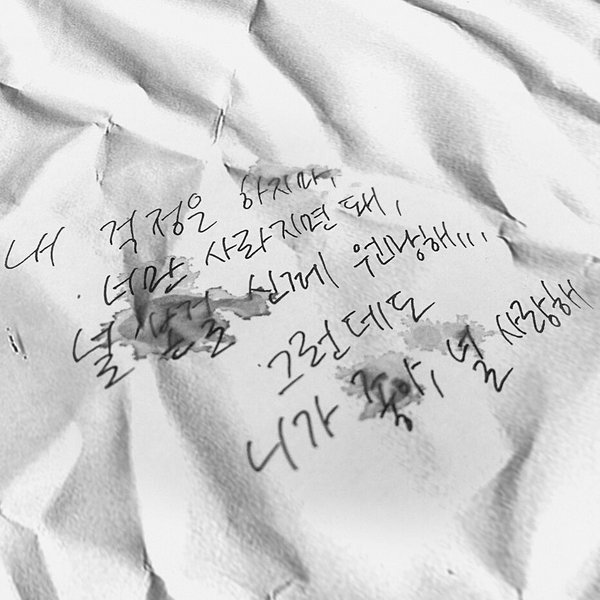 내 걱정은 하지마,
너만 사라지면 돼,
널 본걸 신께 원망해...
그런데도
니가 좋아, 널 사랑해